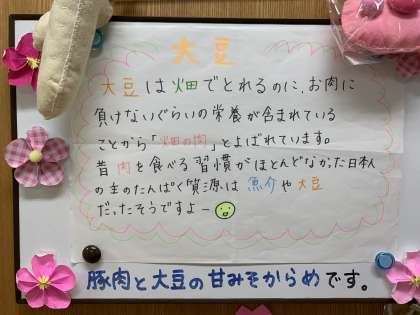 大豆
大豆は畑でとれるのに、お肉に
負けないぐらいの栄養が含まれている
ことから「畑の肉」とよばれています。
昔肉を食べる習慣がほとんどなかった日本人
の主のたんぱく質源は魚介や大豆
だったそうですよー
豚肉と大豆の甘みそからめです。